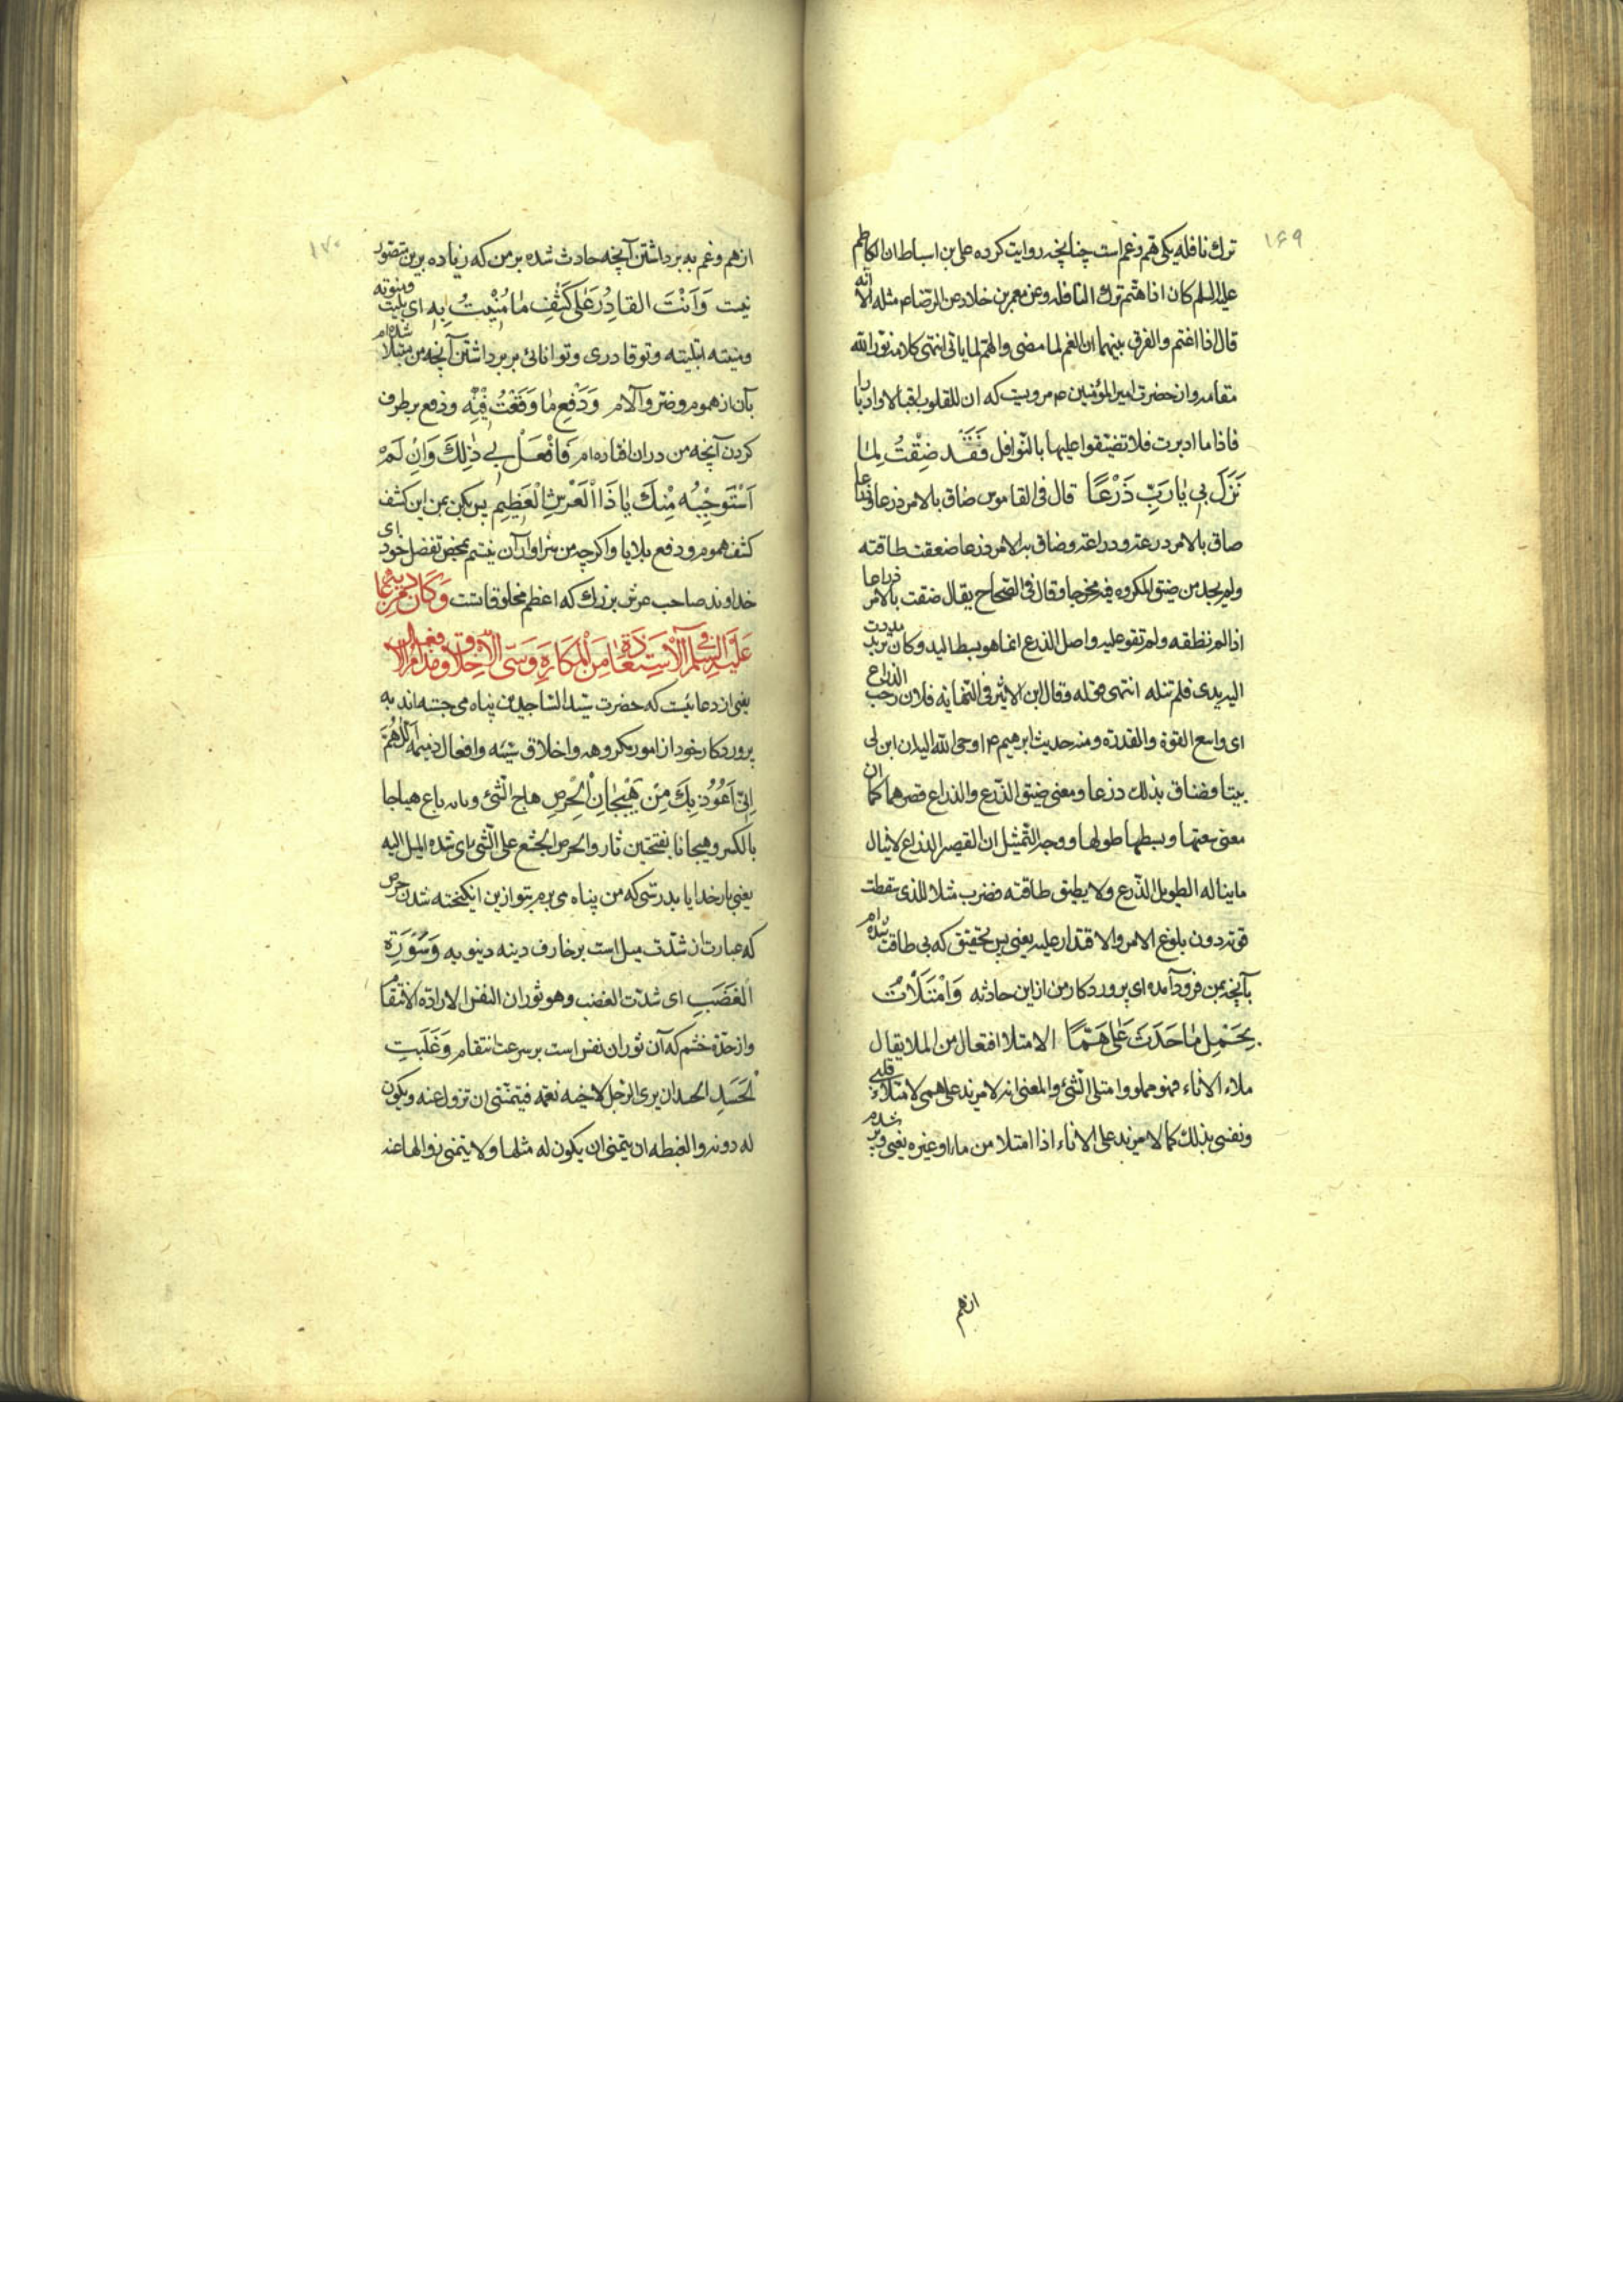 ۱۶۹
ترك نافله يكى هم و غم است چنانچه روايت كرده على بن اسباط ان الكاظم
عليه السلم كان اذا اهتم ترك النافله و عن معمر بن خلاد عن الرضا ع مثله الا انه
قال اذا اغتم والفرق بينهما ان الغم لما مضى والهم لما ياتى انتهى كلامه نور الله
مقامه و از حضرت امير المؤمنين ع مرويست كه ان للقلوب اقبالا و ادبارا
فاذا ما ادبرت فلا تضيقوا عليها بالنوافل فَقَد ضِقْتُ لِمٰا
نَزَلَ بى يٰا رَبِّ ذَرْعًا قال فى القاموس ضاق بالامر ذرعا و ذراعا
ضاق بالامر ذرعه و ذراعه و ضاق به الامر ذرعا ضعفت طاقته
ولم يجد من ضيق المكروه فيه مخرجا و قال فى الصحاح يقال ضقت بالامر ذراعا
اذا لم تطقه ولم تقو عليه واصل الذرع انما هو بسط اليد و كان تريد مددت
اليه يدى فلم تنله انتهى محله و قال ابن الاثير فى النهايه فلان رحب الذراع
اى واسع القوة والقدرة و منه حديث ابرهيم ع اوحى الله اليه ان ابن لى
بيتا فضاق بذلك ذرعا و معنى ضيق الذرع والذراع قصرهما كما ان
معنى سعتها و بسطها طولها و وجه التمثيل ان القصير الذراع لا ينال
ما يناله الطويل الذرع ولا يطيق طاقته فضرب مثلا للذى سقطت
قوته دون بلوغ الامر والاقتدار عليه يعنى پس بتحقيق كه بى طاقت شده ام
بآنچه بمن فرود آمده اى پروردكار من از اين حادثه وَامْتَلَأْتُ
بِحَمْلِ مٰا حَدَثَ عَلَى هَمًّا الامتلا افتعال من الملا يقال
ملاء الاناء فهو مملو و امتلى الشئ والمعنى انه لا مزيد على همى لامتلاء قلبى
و نفسى بذلك كما لا مزيد على الاناء اذا امتلا من ماء او غيره يعنى و پر شدم
ازهم
۱۷۰
از هم و غم به برداشتن آنچه حادث شده بر من كه زياده برين متصور
نيست وَاَنْتَ القادِرُ عَلٰى كَشْفِ مٰا مُنِيْتُ بِهِ اى بليت و منوته
و منيته ابتليته و تو قادرى و توانائى بر برداشتن آنچه من مبتلا شده ام
بآن از هموم و ضر و آلام وَدَفْعِ مٰا وَقَعْتُ فِيْهِ و دفع بر طرف
كردن آنچه من دران افتاده ام فَافْعَلْ بى ذٰلِكَ وَاِنْ لَمْ
اَسْتَوْجِبْهُ مِنْكَ يٰا ذَا الْعَرْشِ الْعَظِيمِ پس بكن بمن اين كشف
كشف هموم و دفع بلايا و اكرچه من سزاوار آن نيستم بمحض تفضل خود اى
خداوند صاحب عرش بزرك كه اعظم مخلوقاتست وَكَانَ مِنْ دُعَائِهِ
عَلَيْهِ السَّلَمُ فِى الْاِسْتِعَاذَةِ مِنَ الْمَكَارِهِ وَسَيِّئِ الْاَخْلَاقِ وَمَذَامِّ الْاَفْعَالِ
يعنى از دعائيست كه حضرت سيد الساجدين پناه مى جسته اند به
پروردكار خود از امور مكروهه و اخلاق سيئه و افعال ذميمه اَللّٰهُمَّ
اِنّى اَعُوذُ بِكَ مِنْ هَيَجٰانِ الْحِرْصِ هاج الشئ و بابه باع هياجا
بالكسر و هيجانا بفتحتين ثار والحرص الجشع على الشئ باى شدة الميل اليه
يعنى بار خدايا بدرستى كه من پناه مى برم بتو از برانكيخته شدن حرص
كه عبارت از شدت ميل است بر زخارف دنيه دنيويه وَسَوْرَةِ
الْغَضَبِ اى شدت الغضب و هو ثوران النفس لارادة الانتقام
و از حدة خشم كه آن ثوران نفس است بر سرعت انتقام وَغَلَبَةِ
الْحَسَدِ الحسد ان يرى الرجل لاخيه نعمة فيتمنى ان تزول عنه و يكون
له دونه والغبطه ان يتمنى ان يكون له مثلها ولا يتمنى زوالها عنه